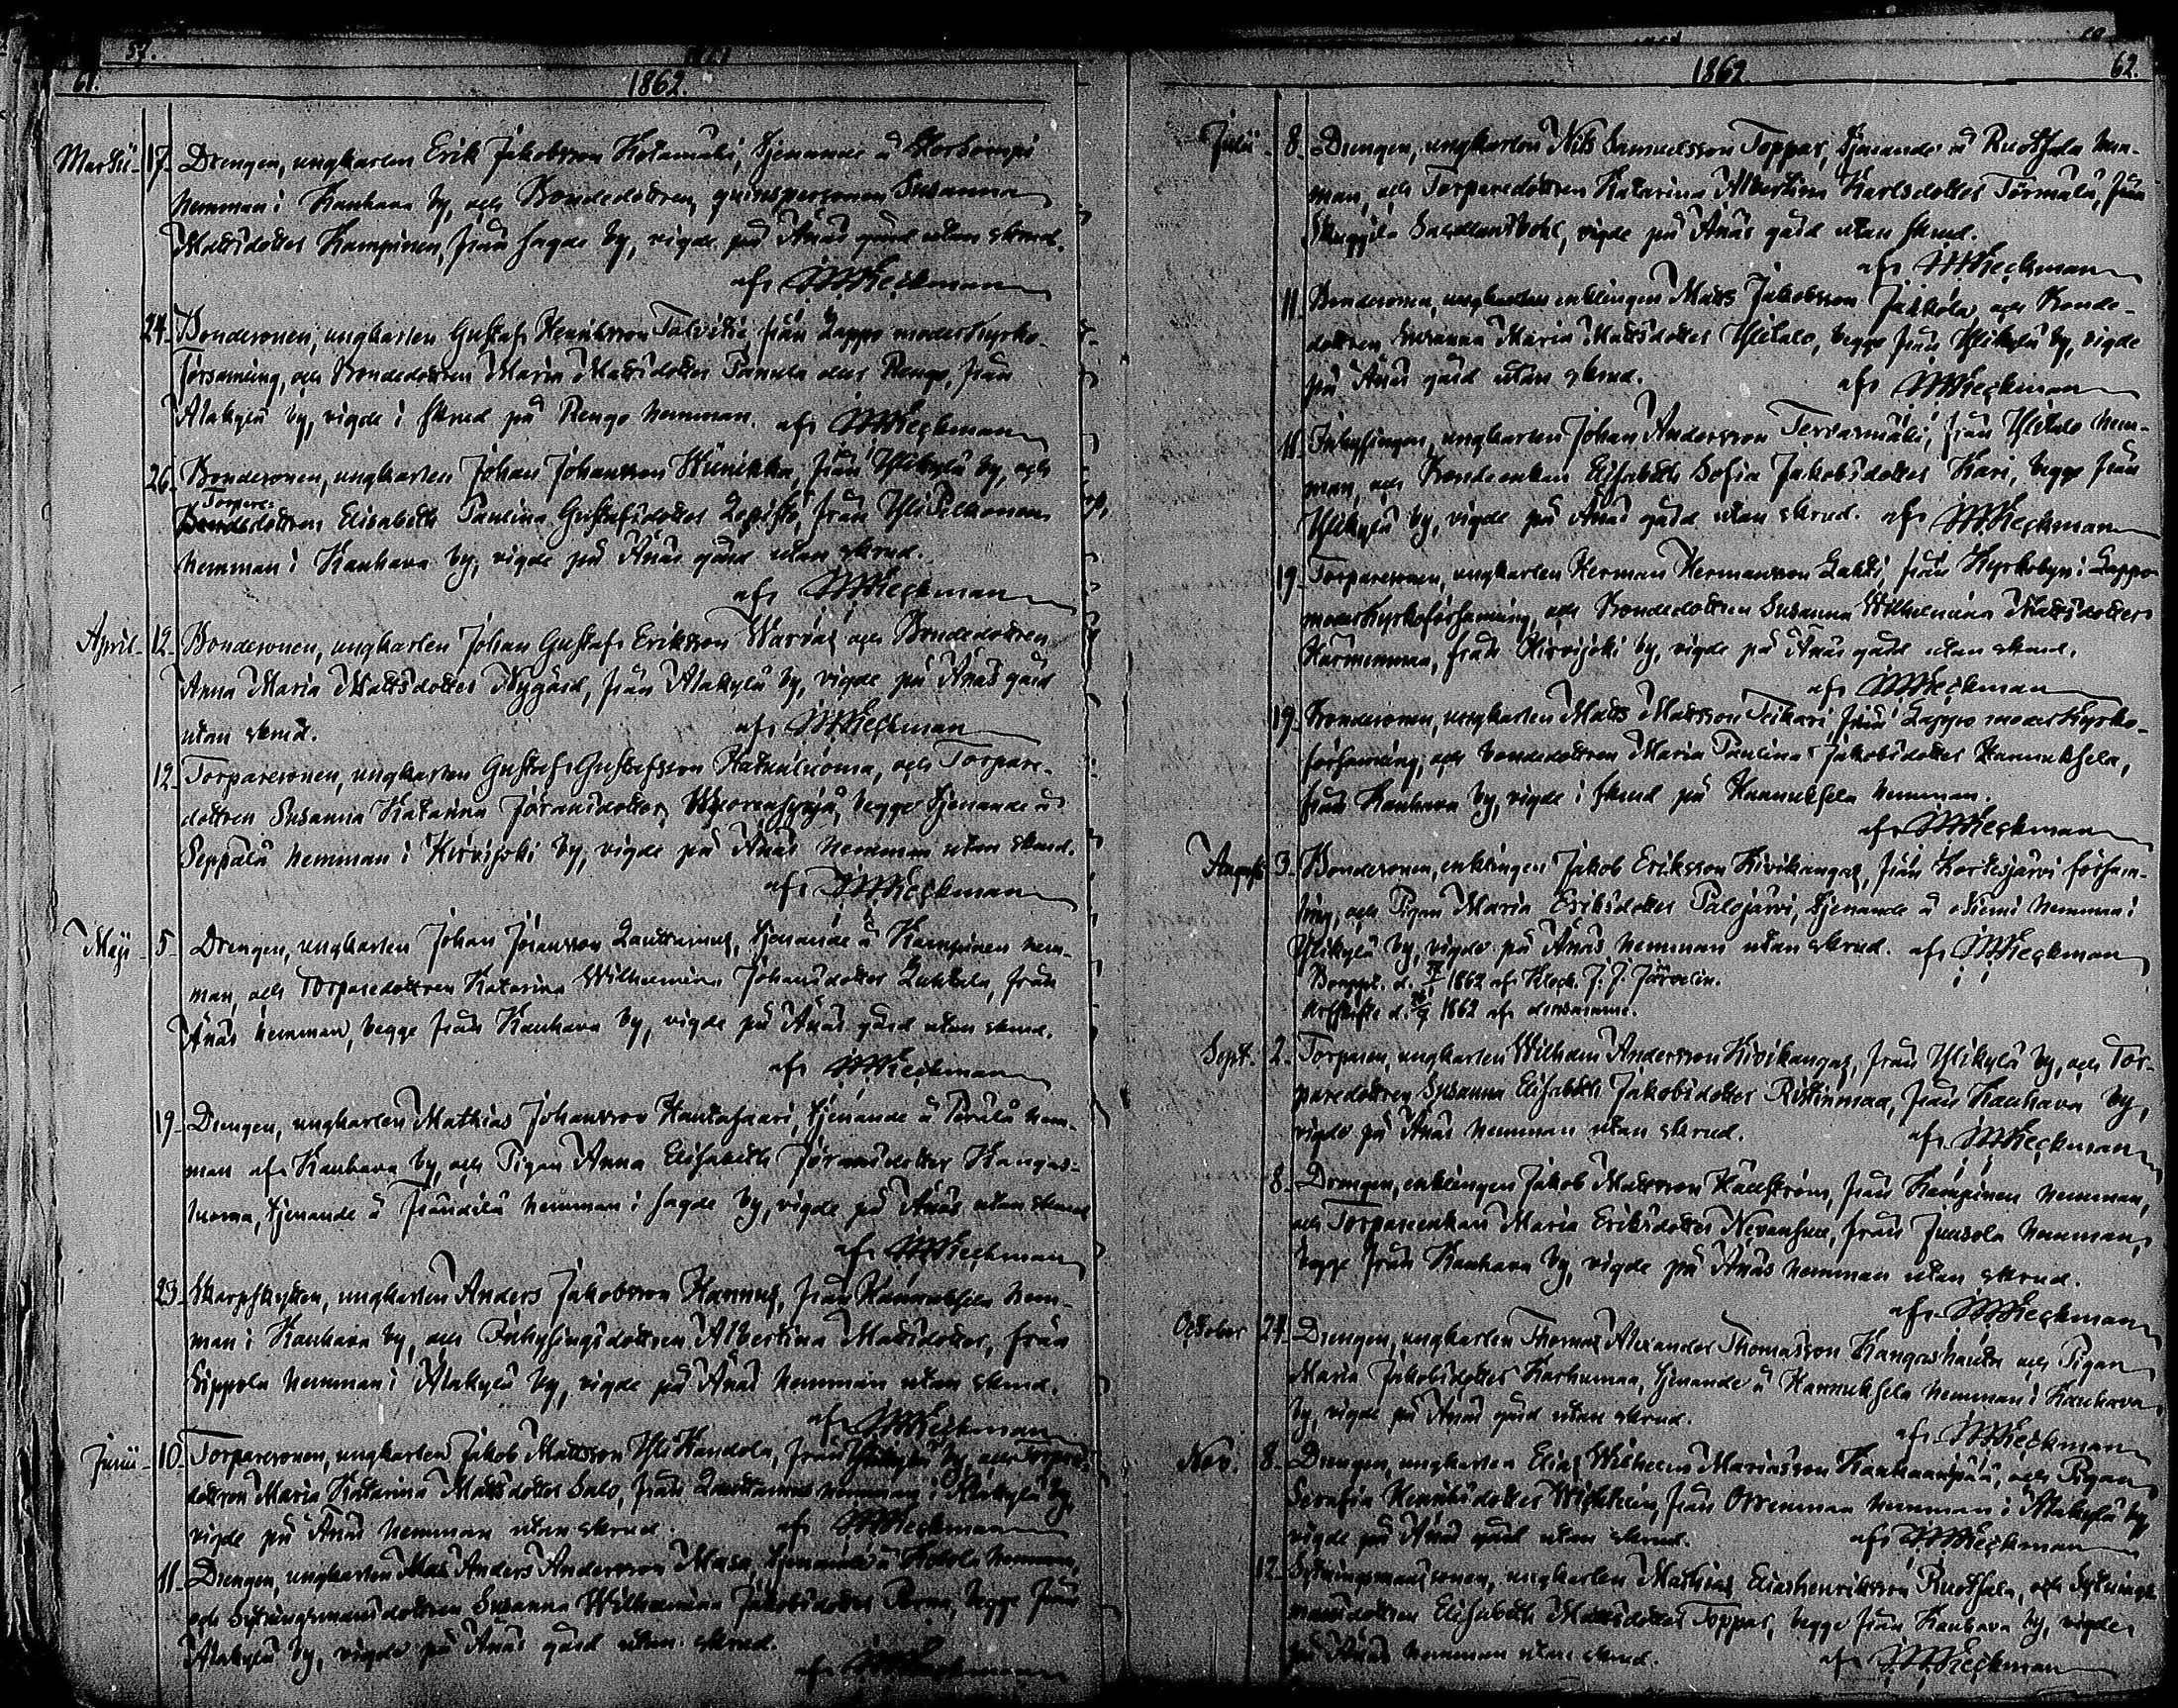 57.
61.
1862.
Martii 17. Drengen, ungkarlen Erik Jakobsson Kotamäki, tjenande å Storhompi
hemman i Kauhava by, och Bondedottren, qvinspersonen Susanna
Mattsdotter Kampinen, från sagde by, vigde på Ånäs gård utan skrud.
af J. M. Keckman
24. Bondesonen, ungkarlen Gustaf Henriksson Talvitie, från Lappo moderkyrko-
församling, och Bondedottren Maria Mattsdotter Panula eller Rengo, från
Alakylä by, vigde i skrud på Rengo hemman. af J. M. Keckman
26. Bondesonen, ungkarlen Johan Johansson Wiinikka, från Ylikylä by, och
Torpare-
Bondedottren Elisabeth Paulina Gustafsdotter Lepistö, från Yli Pelkonen
hemman i Kauhava by, vigde på Ånäs gård utan skrud.
af J. M. Keckman
April 12. Bondesonen, ungkarlen Johan Gustaf Eriksson Warvas och Bondedottren
Anna Maria Mattsdotter Nygård, från Alakylä by, vigde på Ånäs gård
utan skrud. af J. M. Keckman
12. Torparesonen, ungkarlen Gustaf Gustafsson och Torpare-
dottren Susanna Katarina Jöransdotter begge tjenande å
Seppälä hemman i Hirvijoki by, vigde på Ånäs hemman utan skrud.
af J. M. Keckman
Maji 5. Drengen, ungkarlen Johan Jöransson Lauttamus, tjenande å Kampinen hem-
man, och Torparedottren Katarina Wilhelmina Johansdotter Luhtala, från
Ånäs hemman, begge från Kauhava by, vigde på Ånäs gård utan skrud.
af J. M. Keckman
19. Drengen, ungkarlen Mathias Johansson Hautasaari, tjenande å Perälä hem-
man af Kauhava by, och Pigan Anna Elisabeth Jöransdotter Kangas-
luoma, tjenande å Frändilä hemman i sagde by, vigde på Ånäs utan skrud
af J. M. Keckman
23. Skarpskytten, ungkarlen Anders Jakobsson Hannus, från Hannuksela hem-
man i Kauhava by, och Inhysingsdottren Albertina Mattsdotter, från
Sippola hemman i Alakylä by, vigde på Ånäs hemman utan skrud.
af J. M. Keckman
Junii 10. Torparesonen, ungkarlen Jakob Mattsson Yli Kandola, från Ylikylä by, och Torpare-
dottren Maria Katarina Mattsdotter Salo, från Lauttamus hemman i Alakylä by,
vigde på Ånäs hemman utan skrud. af J. M. Keckman
11. Drengen, ungkarlen Anders Andersson Masa, tjenande å Kokola hemman,
och Sytningsmansdottren Susanna Wilhelmina Jakobsdotter Perna, begge från
Alakylä by, vigde på Ånäs gård utan skrud.
af J. M. Keckman
1862.
62.
Julii 8. Drengen, ungkarlen Nils Samuelsson Toppar, tjenande å Ruotsala hem-
man, och Torparedottren Katarina Albertina Karlsdotter Törmälä, från
vigde på Ånäs gård utan skrud.
af J. M. Keckman
11. Bondesonen, ungkarlen enklingen Matts Jakobsson Jäkkölä, och Bonde-
dottren Susanna Maria Mattsdotter Ylitalo, begge från Ylikylä by, vigde
på Ånäs gård utan skrud. af J. M. Keckman
11. Inhysingen, ungkarlen Johan Andersson Tervasmäki, från Ylitalo hem-
man, och Bondeenkan Elisabeth Sofia Jakobsdotter Kari, begge från
Ylikylä by, vigde på Ånäs gård utan skrud. af J. M. Keckman
19. Torparesonen, ungkarlen Herman Hermansson Lahti, från Kyrkobyn i Lappo
moderkyrkoförsamling, och Bondedottren Susanna Wilhelmina Mattsdotter
Härmenmaa, från Hirvijoki by, vigde på Ånäs gård utan skrud.
af J. M. Keckman
19. Bondesonen, ungkarlen Matts Mattsson Teikari, från Lappo moderkyrko-
församling, och bondedottren Maria Paulina Jakobsdotter Hannuksela,
från Kauhava by, vigde i skrud på Hannuksela hemman.
af J. M. Keckman
Augusti 3. Bondesonen, enklingen Jakob Eriksson Kivikangas, från Kortesjärvi försam-
ling, och Pigan Maria Eriksdotter Palojärvi, tjenande å hemman i
Ylikylä by, vigde på Ånäs hemman utan skrud. af J. M. Keckman
1862 af Klock. J. J. Järvelin.
1862 af densamme.
Sept. 2. Torparen, ungkarlen Wilhelm Andersson Kivikangas, från Ylikylä by, och Tor-
paredottren Susanna Elisabeth Jakobsdotter Ristinmaa, från Kauhava by,
vigde på Ånäs hemman utan skrud. af J. M. Keckman
8. Drengen, enklingen Jakob Mattsson Hällström, från Kampinen hemman,
och Torpareenkan Maria Eriksdotter från Jussola hemman,
begge från Kauhava by, vigde på Ånäs hemman utan skrud.
af J. M. Keckman
October 24. Drengen, ungkarlen Thomas Alexander Thomasson Kangashauta och Pigan
Maria Jakobsdotter Karhumaa, tjenande å Hannuksela hemman i Kauhava
by, vigde på Ånäs gård utan skrud.
af J. M. Keckman
Nov. 8. Drengen, ungkarlen Elias Wilhelm Mariasson Kauhanpää, och Pigan
Serafia Henriksdotter från Orrenmaa hemman i Alakylä by,
vigde på Ånäs gård utan skrud. af J. M. Keckman
12. Sytningsmanssonen, ungkarlen Mathias Eliashenriksson Ruotsala, och Sytnings-
mansdottren Elisabeth Mattsdotter Toppar, begge från Kauhava by, vigde
på Ånäs hemman utan skrud. af J. M. Keckman